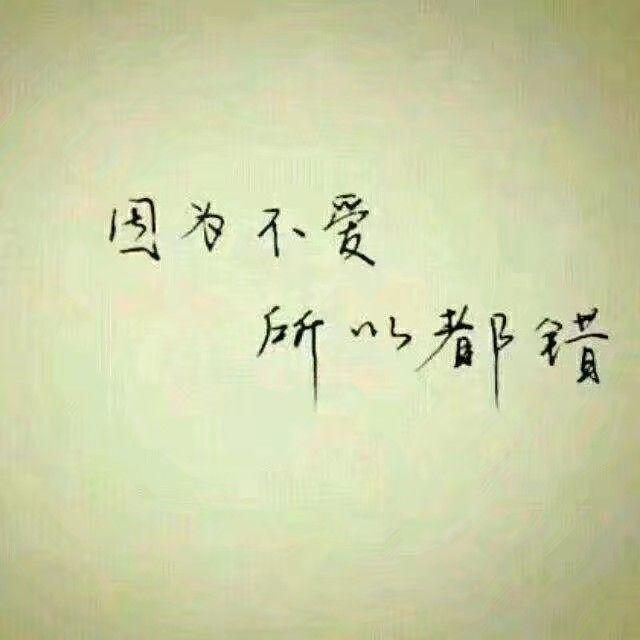 因为不爱
所以都错